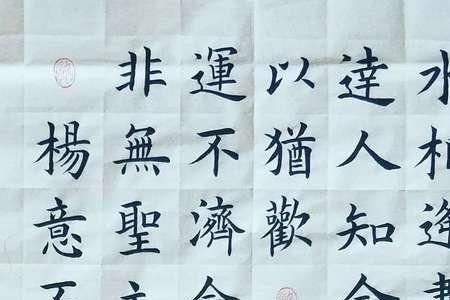 水相逢
達人知
以猶歡
運不濟
非無聖
楊意